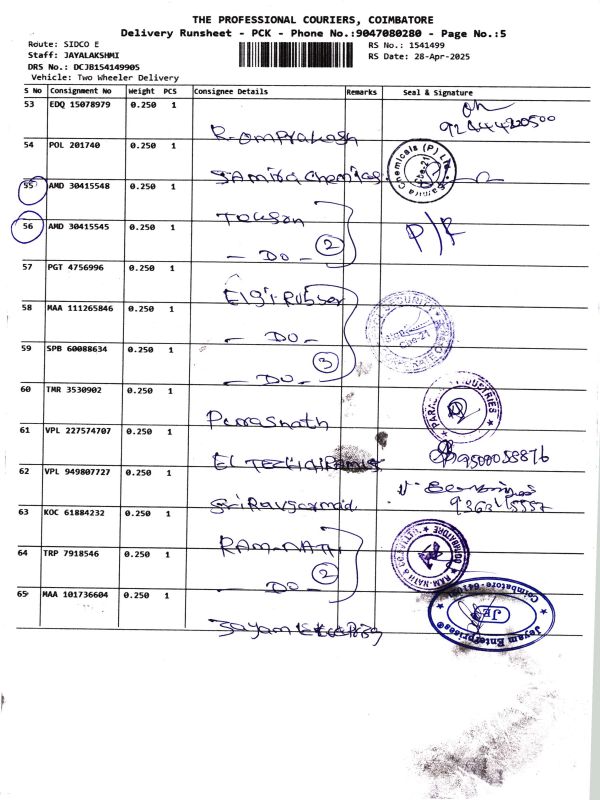 THE PROFESSIONAL COURIERS, COIMBATORE
Delivery Runsheet - PCK - Phone No.:9047080280 - Page No.:5
Route: SIDCO E
RS No.: 1541499
Staff: JAYALAKSHMI
RS Date: 28-Apr-2025
DRS No.: DCJB154149905
Vehicle: Two Wheeler Delivery
S No Consignment No Weight PCS Consignee Details Remarks Seal & Signature
53 EDQ 15078979 0.250 1
R. Omprakash
54 POL 201740 0.250 1
Samira Chemicals
55 AMD 30415548 0.250 1
56 AMD 30415545 0.250 1
- DO - 2
P/R
57 PGT 4756996 0.250 1
Elgi Rubber
58 MAA 111265846 0.250 1
- DO -
59 SPB 60088634 0.250 1
- DO - 3
60 TMR 3530902 0.250 1
61 VPL 227574707 0.250 1
9500058876
62 VPL 949807727 0.250 1
63 KOC 61884232 0.250 1
RAM-NATH
64 TRP 7918546 0.250 1
- DO - 2
65 MAA 101736604 0.250 1
Jayam Enterprises
JE
Coimbatore